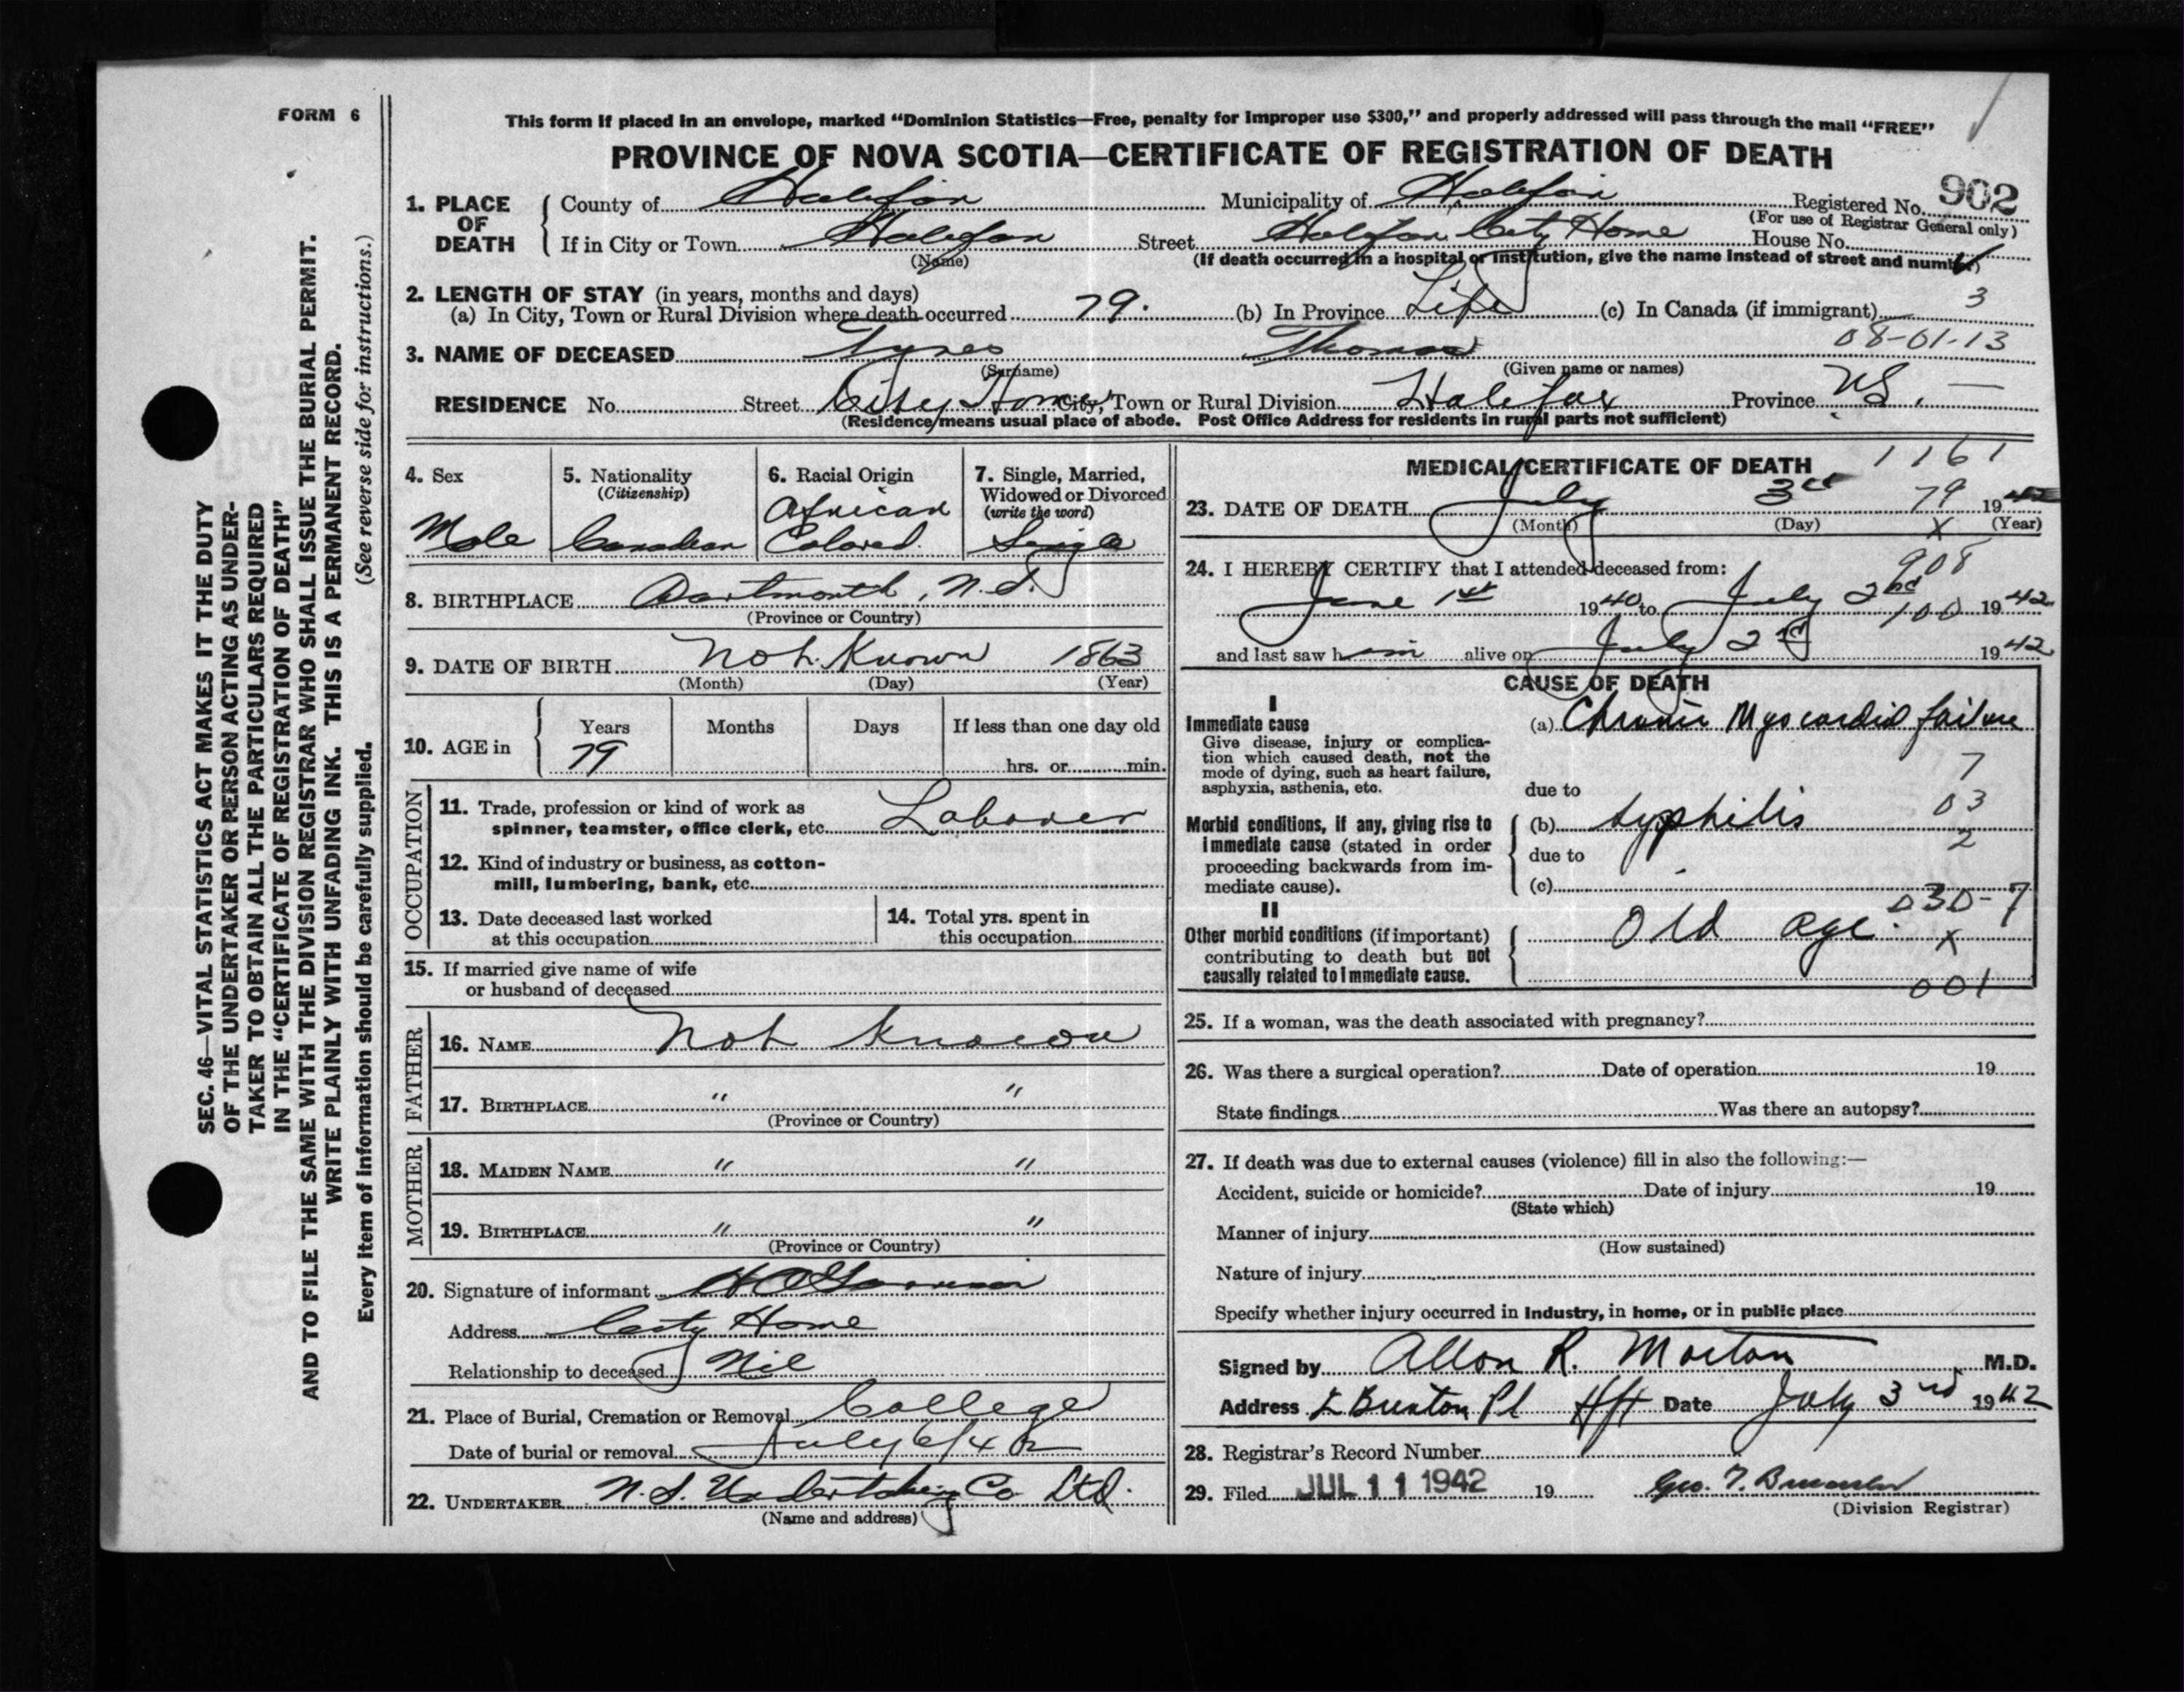 FORM 6
This form if placed in an envelope, marked "Dominion Statistics—Free, penalty for improper use $300," and properly addressed will pass through the mail "FREE"
PROVINCE OF NOVA SCOTIA—CERTIFICATE OF REGISTRATION OF DEATH
SEC. 46—VITAL STATISTICS ACT MAKES IT THE DUTY
OF THE UNDERTAKER OR PERSON ACTING AS UNDER-
TAKER TO OBTAIN ALL THE PARTICULARS REQUIRED
IN THE "CERTIFICATE OF REGISTRATION OF DEATH"
AND TO FILE THE SAME WITH THE DIVISION REGISTRAR WHO SHALL ISSUE THE BURIAL PERMIT.
WRITE PLAINLY WITH UNFADING INK. THIS IS A PERMANENT RECORD.
Every item of information should be carefully supplied. (See reverse side for instructions.)
1. PLACE OF DEATH County of Halifax Municipality of Halifax Registered No. 902
(For use of Registrar General only)
If in City or Town Halifax Street Halifax City Home House No.
(Name) (If death occurred in a hospital or institution, give the name instead of street and number)
2. LENGTH OF STAY (in years, months and days)
(a) In City, Town or Rural Division where death occurred 79. (b) In Province Life (c) In Canada (if immigrant) 3
08-01-13
3. NAME OF DECEASED Tynes Thomas
(Surname) (Given name or names)
RESIDENCE No. Street City Home City, Town or Rural Division Halifax Province NS. —
(Residence means usual place of abode. Post Office Address for residents in rural parts not sufficient)
4. Sex Male
5. Nationality (Citizenship) Canadian
6. Racial Origin African Colored.
7. Single, Married, Widowed or Divorced (write the word) Single
8. BIRTHPLACE Dartmouth, N.S.
(Province or Country)
9. DATE OF BIRTH Not Known 1863
(Month) (Day) (Year)
10. AGE in Years Months Days If less than one day old
79 hrs. or min.
OCCUPATION
11. Trade, profession or kind of work as
spinner, teamster, office clerk, etc. Laborer
12. Kind of industry or business, as cotton-
mill, lumbering, bank, etc.
13. Date deceased last worked
at this occupation
14. Total yrs. spent in
this occupation
15. If married give name of wife
or husband of deceased
FATHER
16. NAME Not Known
17. BIRTHPLACE " "
(Province or Country)
MOTHER
18. MAIDEN NAME " "
19. BIRTHPLACE " "
(Province or Country)
20. Signature of informant
Address City Home
Relationship to deceased Nil
21. Place of Burial, Cremation or Removal College
Date of burial or removal July 6/42
22. UNDERTAKER N.S. Undertaking Co Ltd.
(Name and address)
MEDICAL CERTIFICATE OF DEATH 1161
23. DATE OF DEATH July 3rd 79 1942
(Month) (Day) x (Year)
908
24. I HEREBY CERTIFY that I attended deceased from:
June 1st 1940 to July 2nd 100 1942
and last saw him alive on July 2nd 1942
CAUSE OF DEATH
I
Immediate cause
Give disease, injury or complica-
tion which caused death, not the
mode of dying, such as heart failure,
asphyxia, asthenia, etc.
(a) Chronic Myocardial failure
7
due to
03
Morbid conditions, if any, giving rise to
immediate cause (stated in order
proceeding backwards from im-
mediate cause).
(b) Syphilis
2
due to
(c)
030-7
II
Other morbid conditions (if important)
contributing to death but not
causally related to immediate cause.
Old age.
x
001
25. If a woman, was the death associated with pregnancy?
26. Was there a surgical operation? Date of operation 19
State findings Was there an autopsy?
27. If death was due to external causes (violence) fill in also the following:—
Accident, suicide or homicide? Date of injury 19
(State which)
Manner of injury
(How sustained)
Nature of injury
Specify whether injury occurred in industry, in home, or in public place
Signed by Allan R. Morton M.D.
Address Brenton Pl Hfx Date July 3rd 1942
28. Registrar's Record Number
29. Filed JUL 11 1942 19 Geo. T.
(Division Registrar)